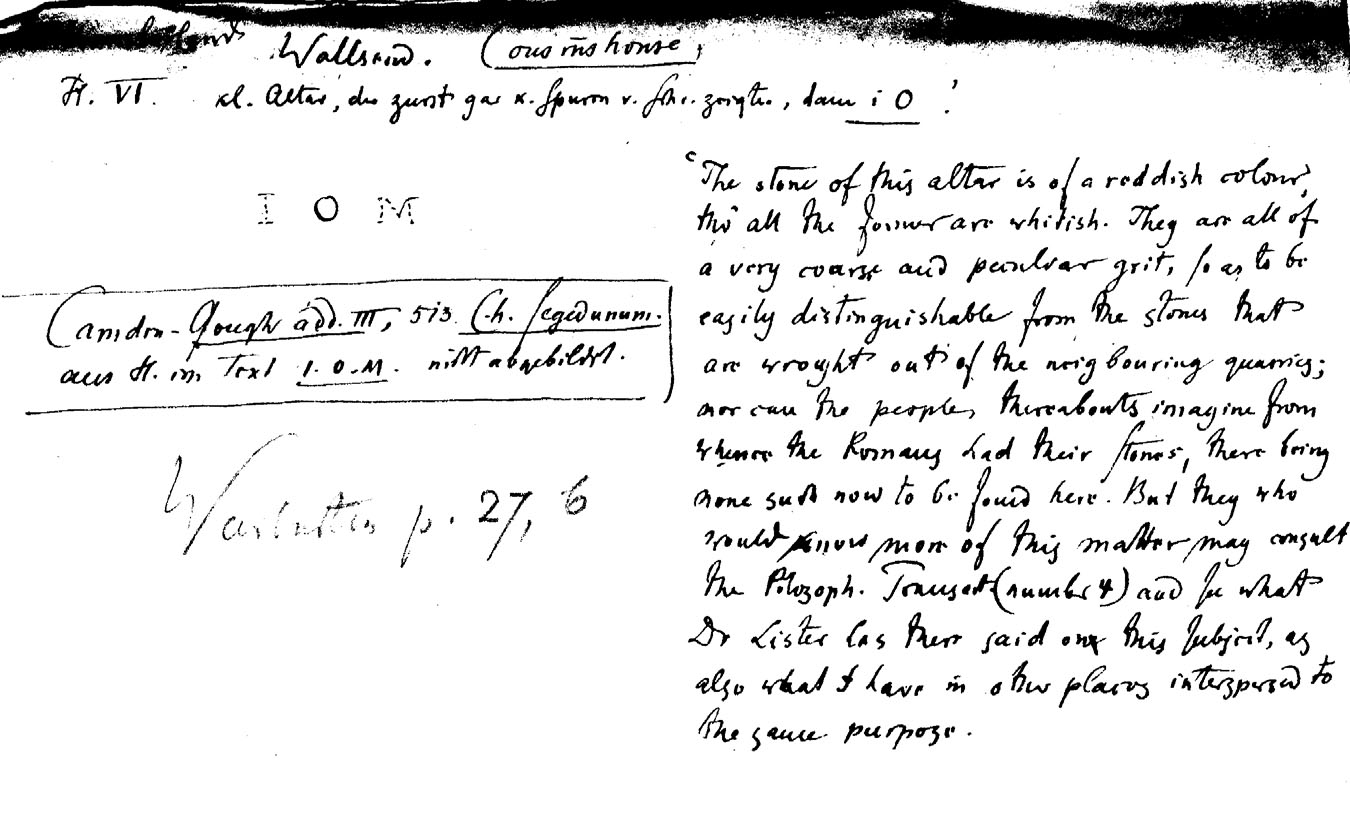 Wallsend. (Cousins house)
H. VI. kl. Altar, der zuerst gar k. Spuren v. Schr. zeigte, dann i O !
I O M
Camden-Gough add. III, 513 Ch. Segedunum.
aus H. im Text I.O.M. nicht abgebildet.
Warburton p. 27, 6
"The stone of this altar is of a reddish colour,
tho' all the former are whitish. They are all of
a very coarse and peculiar grit, so as to be
easily distinguishable from the stones that
are wrought out of the neigbouring quarries;
nor can the people, thereabouts imagine from
whence the Romans had their stones, there being
none such now to be found here. But they who
would know more of this matter may consult
the Pilosoph. Transact (number 4) and see what
Dr Lister has there said on this subject, as
also what I have in other places interspersed to
the same purpose.